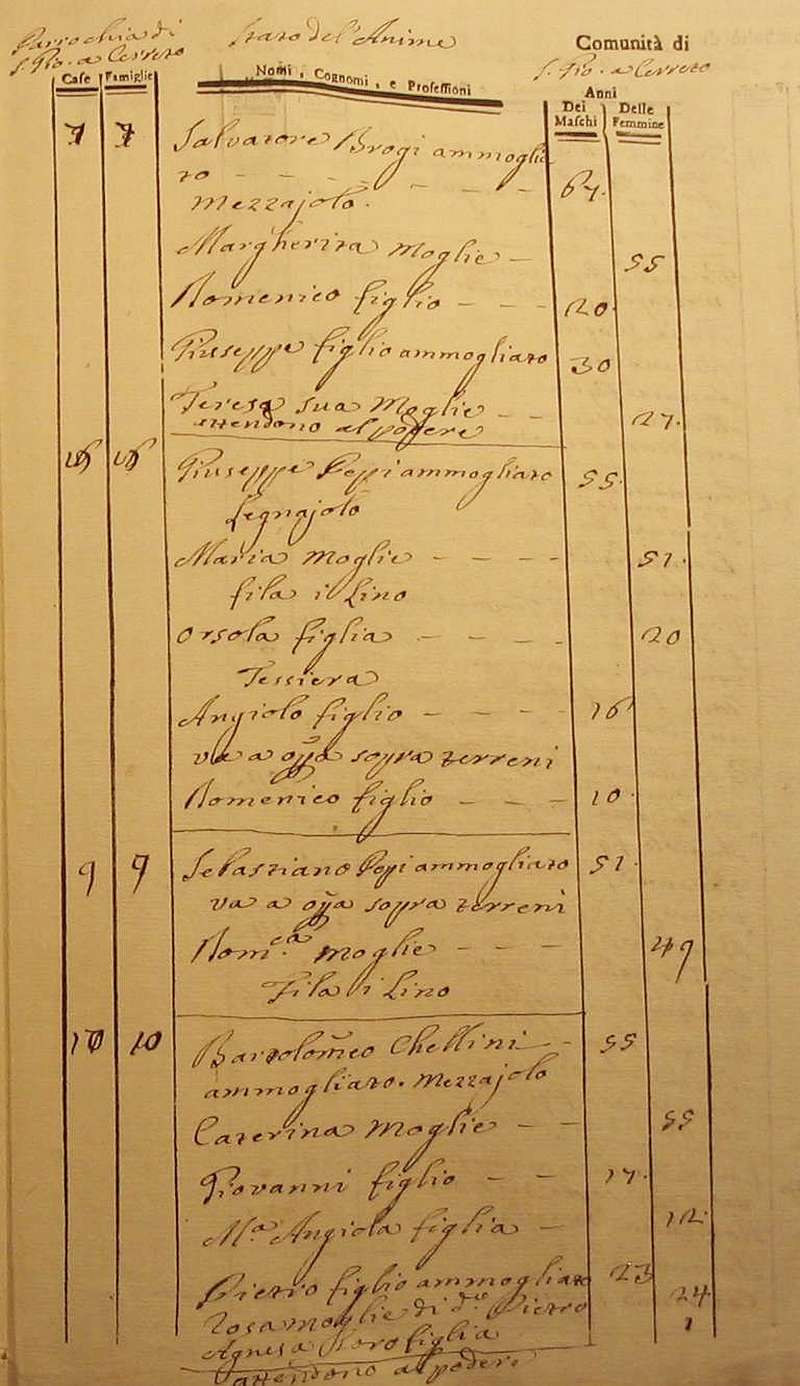 Parrochia di Stato del'Anime Comunità di
S. Gio. a Cerreto S. Gio. a Cerreto
Case Famiglie Nomi, Cognomi, e Professioni Anni
Dei Maschi Delle Femmine
7 7 Salvatore Brogi ammoglia
to - - - - - - - 67.
Mezzajolo.
Margherita Moglie - 55
Domenico figlio - - - 20.
Giuseppe figlio ammogliato 30
Teresa sua Moglie - - 27.
attendono al podere
8 8 Giuseppe Pepi ammogliato 55.
Legnajolo
Maria Moglie - - - - 51.
fila il Lino
Orsola figlia - - - - 20
Tessiera
Angiolo figlio - - - - 16
va a opa sopra terreni
Domenico figlio - - - 10.
9 9 Sebastiano Pepi ammogliato 51.
va a opa sopra terreni
Dom.ca Moglie - - - 49
Fila il Lino
10 10 Bartolomeo Chellini - - 55
ammogliato. Mezzajolo
Caterina Moglie - - 55
Giovanni figlio - - 17.
M.a Angiola figlia - 12.
Pietro figlio ammogliato 23
Rosa moglie di d.o Pietro 24
Agnesa loro figlia 1
attendono al podere